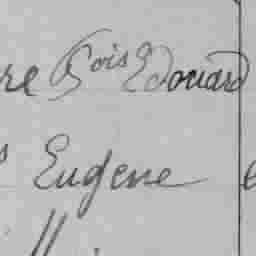 re Fçois Edouard
s Eugene
"